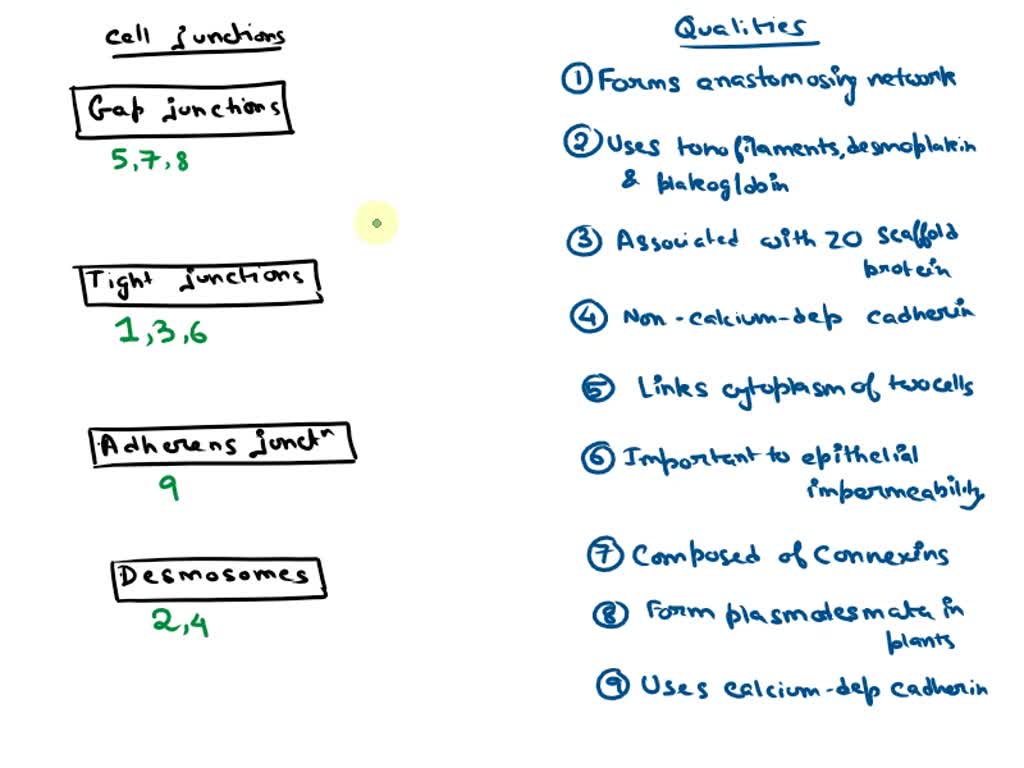 Cell junctions
Gap junctions
5,7,8
Tight junctions
1,3,6
Adherens junctⁿ
9
Desmosomes
2,4
Qualities
① Forms anastomosing network
② Uses tonofilaments, desmoplakin
& plakoglobin
③ Associated with ZO scaffold
protein
④ Non-calcium-dep cadherin
⑤ Links cytoplasm of two cells
⑥ Important to epithelial
impermeability
⑦ Composed of Connexins
⑧ Form plasmodesmata in
plants
⑨ Uses calcium-dep cadherin